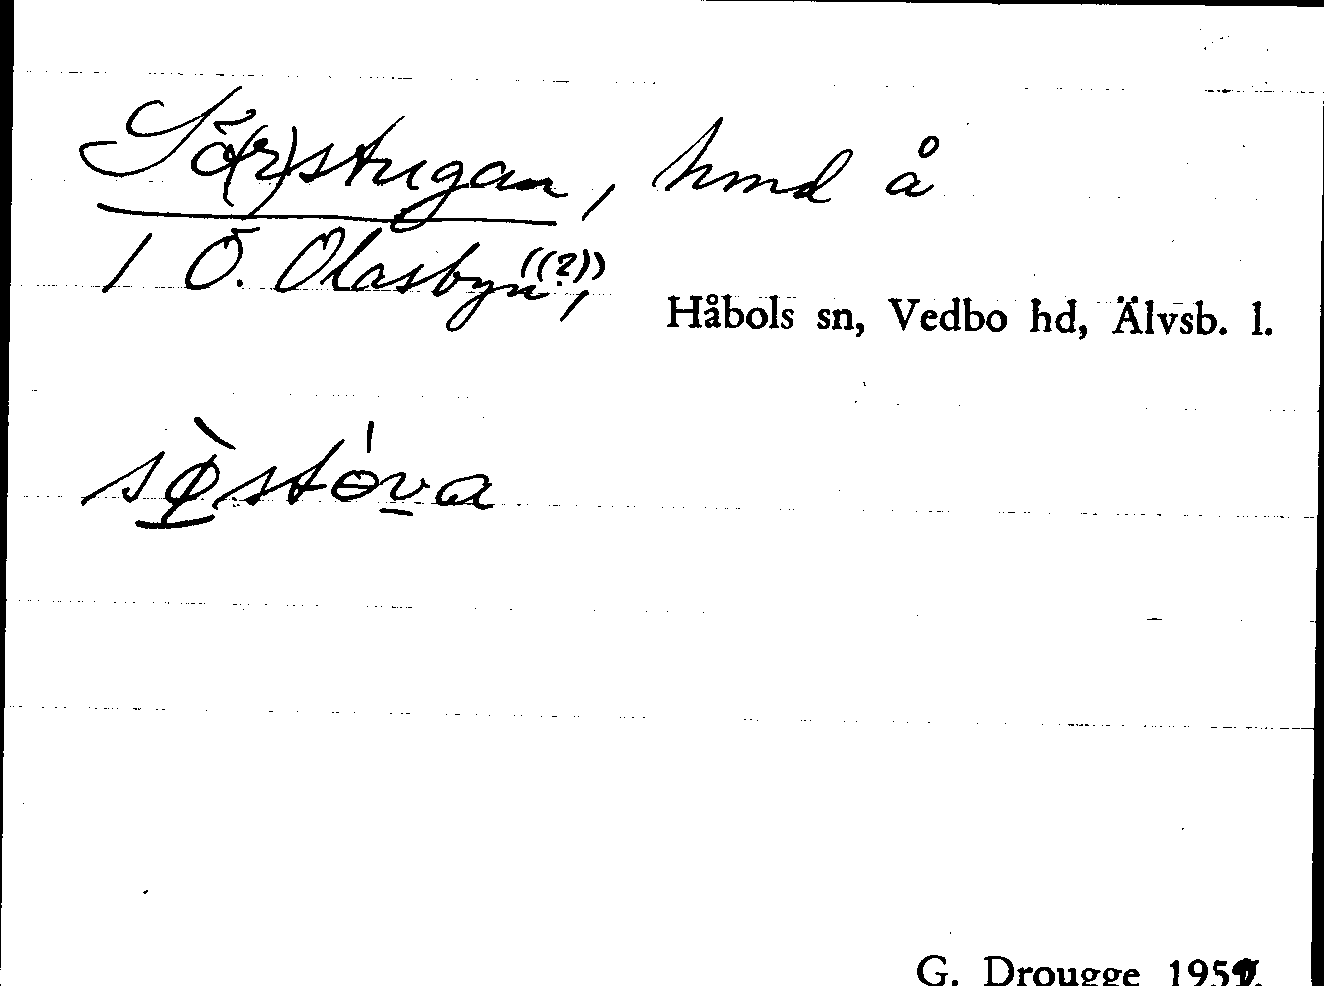 Sö(r)stugan, hmd å
1 Ö. Olasbyn((?)),
Håbols sn, Vedbo hd, Älvsb. l.
sø̀stɵ́va
G. Drougge 195